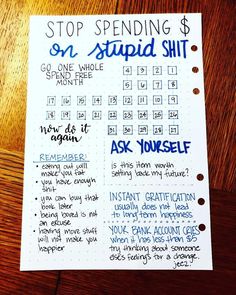 STOP SPENDING $
on stupid SHIT
GO ONE WHOLE
SPEND FREE
MONTH
4 3 2 1
5 6 7 8
17 16 15 14 13 12 11 10 9
18 19 20 21 22 23 24 25 26
31 30 29 28 27
now do it
again
ASK YOURSELF
REMEMBER:
• eating out will
make you fat
• you have enough
shit
• you can buy that
book later
• being bored is not
an excuse
• having more stuff
will not make you
happier
is this item worth
setting back my future?
INSTANT GRATIFICATION
usually does not lead
to long term happiness
YOUR BANK ACCOUNT CRIES
when it has less than $5
try thinking about someone
else's feelings for a change.
jeez!